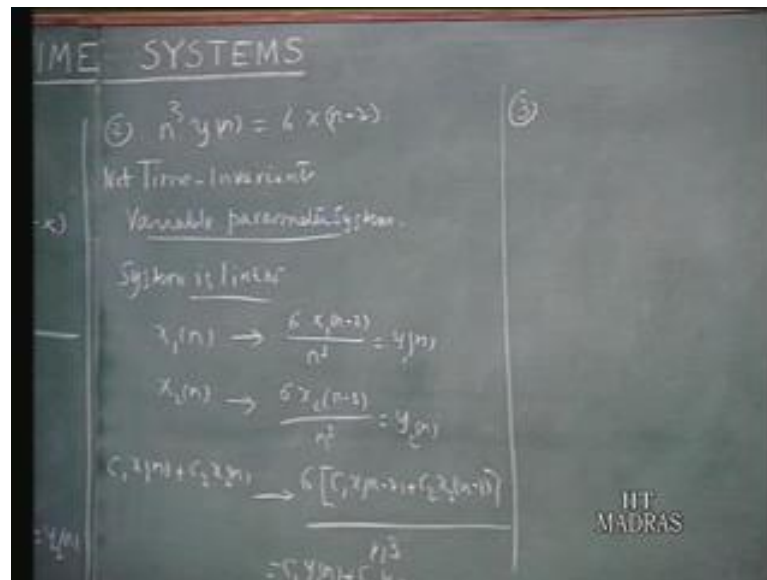 IME SYSTEMS
② n³ y(n) = 6 x(n-2)
③
Not Time-Invariant
-x)
Variable parameter System.
System is linear
x₁(n) → 6 x₁(n-2) / n³ = y₁(n)
x₂(n) → 6 x₂(n-2) / n³ = y₂(n)
C₁x₁(n) + C₂x₂(n) → 6[C₁x₁(n-2) + C₂x₂(n-2)] / n³
= y₂(n)
= C₁y₁(n) + C₂
IIT
MADRAS